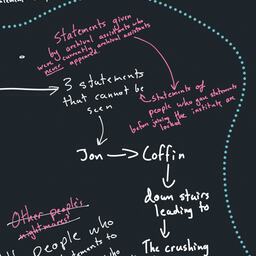 Statements given
by archival assistants who
were currently archival assistants
never appeared.
3 statements
that cannot be
seen
statements of
people who gave statements
before joining the institute are
locked
Jon → Coffin
down stairs
leading to
The crushing
Other people's
nightmares?
People who
statements to
who